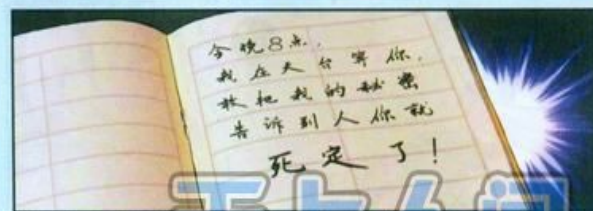 今晚8点,
我在天台等你,
敢把我的秘密
告诉别人你就
死定了！